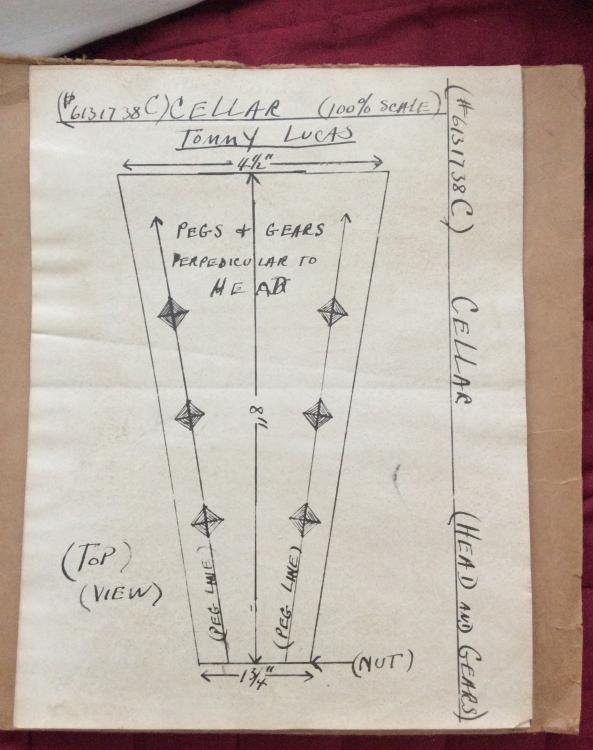 (#6131738C) CELLAR (100% SCALE)
TOMMY LUCAS
4½"
PEGS & GEARS
PERPEDICULAR TO
HEAD
8"
(TOP)
(VIEW)
(PEG LINE)
(PEG LINE)
(NUT)
1¾"
(#6131738C) CELLAR (HEAD AND GEARS)